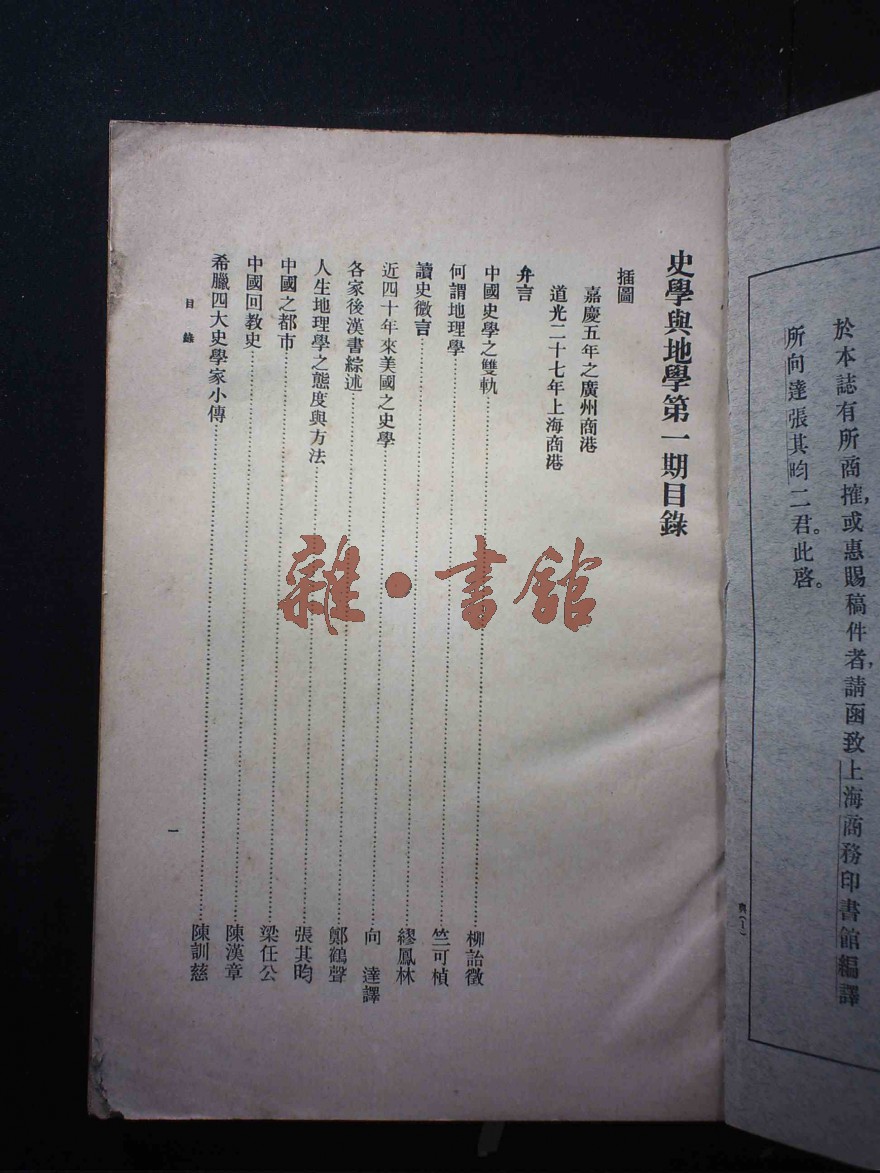 於本誌有所商搉，或惠賜稿件者，請函致上海商務印書館編譯
所向達張其昀二君。此啓。
史學與地學第一期目錄
插圖
嘉慶五年之廣州商港
道光二十七年上海商港
弁言
中國史學之雙軌……柳詒徵
何謂地理學……竺可楨
讀史微言……繆鳳林
近四十年來美國之史學……向 達譯
各家後漢書綜述……鄭鶴聲
人生地理學之態度與方法……張其昀
中國之都市……梁任公
中國回教史……陳漢章
希臘四大史學家小傳……陳訓慈
目錄
一
雜·書館